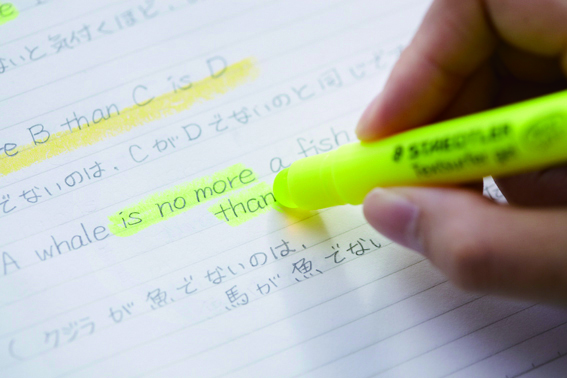 e
ないと気付くほど、
e B than C is D
でないのは、CがDでないのと同じで
A whale is no more a fish
than
(クジラが魚でないのは、
馬が魚でない
STAEDTLER
textsurfer gel